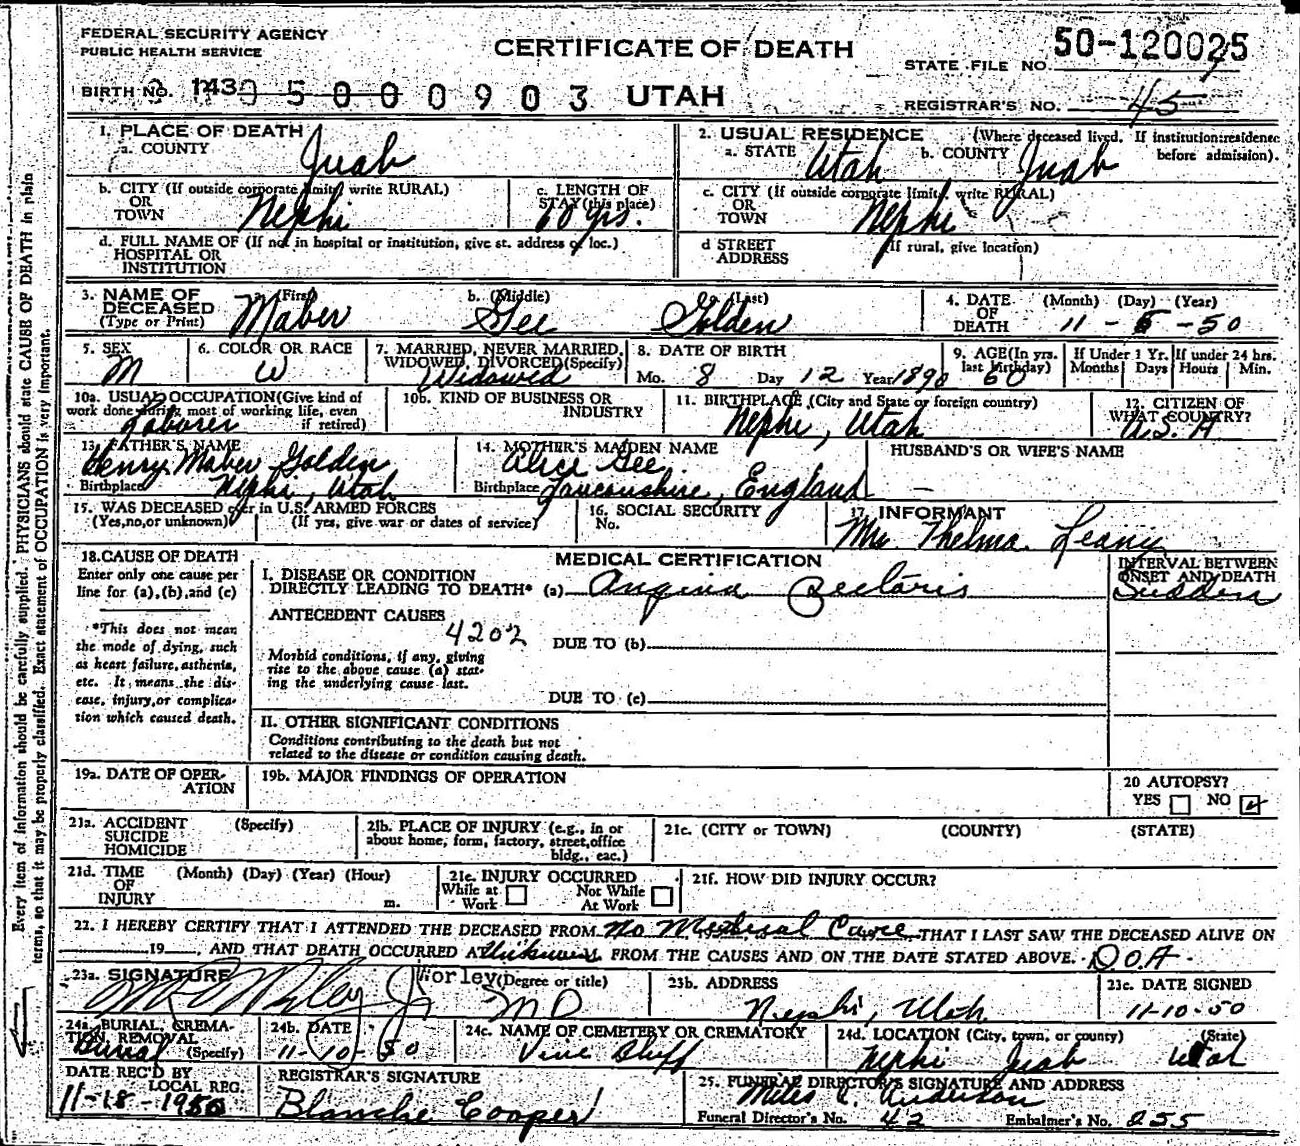 FEDERAL SECURITY AGENCY
PUBLIC HEALTH SERVICE
CERTIFICATE OF DEATH
STATE FILE NO. 50-120025
BIRTH NO. 143 0 5 0 0 0 9 0 3 UTAH
REGISTRAR'S NO. 45
1. PLACE OF DEATH
a. COUNTY Juab
2. USUAL RESIDENCE (Where deceased lived. If institution: residence before admission).
a. STATE Utah b. COUNTY Juab
b. CITY (If outside corporate limits, write RURAL)
OR
TOWN Nephi
c. LENGTH OF
STAY (this place)
60 yrs.
c. CITY (If outside corporate limits, write RURAL)
OR
TOWN Nephi
d. FULL NAME OF (If not in hospital or institution, give st. address or loc.)
HOSPITAL OR
INSTITUTION
d STREET (If rural, give location)
ADDRESS
3. NAME OF DECEASED
(Type or Print)
a. (First) b. (Middle) c. (Last)
Maber Gee Golden
4. DATE OF DEATH (Month) (Day) (Year)
11 - 5 - 50
5. SEX
M
6. COLOR OR RACE
W
7. MARRIED, NEVER MARRIED, WIDOWED, DIVORCED (Specify)
Widowed
8. DATE OF BIRTH
Mo. 8 Day 12 Year 1890
9. AGE (In yrs. last birthday)
60
If Under 1 Yr.
Months Days
If under 24 hrs.
Hours Min.
10a. USUAL OCCUPATION (Give kind of work done during most of working life, even if retired)
Laborer
10b. KIND OF BUSINESS OR INDUSTRY
11. BIRTHPLACE (City and State or foreign country)
Nephi, Utah
12. CITIZEN OF WHAT COUNTRY?
U.S.A
13. FATHER'S NAME
Henry Maber Golden
Birthplace Nephi, Utah
14. MOTHER'S MAIDEN NAME
Alice Gee
Birthplace Lancanshire, England
HUSBAND'S OR WIFE'S NAME
15. WAS DECEASED ever in U.S. ARMED FORCES
(Yes, no, or unknown) (If yes, give war or dates of service)
16. SOCIAL SECURITY
No.
17. INFORMANT
Mrs Thelma Leany
18. CAUSE OF DEATH
Enter only one cause per line for (a), (b), and (c)
*This does not mean the mode of dying, such as heart failure, asthenia, etc. It means the disease, injury, or complication which caused death.
MEDICAL CERTIFICATION
I. DISEASE OR CONDITION
DIRECTLY LEADING TO DEATH* (a) Angina Pectoris
INTERVAL BETWEEN ONSET AND DEATH
Sudden
ANTECEDENT CAUSES
4202
Morbid conditions, if any, giving rise to the above cause (a) stating the underlying cause last.
DUE TO (b)
DUE TO (c)
II. OTHER SIGNIFICANT CONDITIONS
Conditions contributing to the death but not related to the disease or condition causing death.
19a. DATE OF OPERATION
19b. MAJOR FINDINGS OF OPERATION
20 AUTOPSY?
YES NO
21a. ACCIDENT (Specify)
SUICIDE
HOMICIDE
21b. PLACE OF INJURY (e.g., in or about home, form, factory, street, office bldg., eac.)
21c. (CITY or TOWN) (COUNTY) (STATE)
21d. TIME (Month) (Day) (Year) (Hour)
OF
INJURY m.
21e. INJURY OCCURRED
While at Work Not While At Work
21f. HOW DID INJURY OCCUR?
22. I HEREBY CERTIFY THAT I ATTENDED THE DECEASED FROM No Medical Care THAT I LAST SAW THE DECEASED ALIVE ON
19 , AND THAT DEATH OCCURRED AT Unknown FROM THE CAUSES AND ON THE DATE STATED ABOVE. D.O.A.
23a. SIGNATURE (Degree or title)
Worley MD
23b. ADDRESS
Nephi, Utah
23c. DATE SIGNED
11-10-50
24a. BURIAL, CREMATION, REMOVAL (Specify)
Burial
24b. DATE
11-10-50
24c. NAME OF CEMETERY OR CREMATORY
Vine Bluff
24d. LOCATION (City, town, or county) (State)
Nephi Juab Utah
DATE REC'D BY LOCAL REG.
11-18-1950
REGISTRAR'S SIGNATURE
Blanche Cooper
25. FUNERAL DIRECTOR'S SIGNATURE AND ADDRESS
Miles L. Anderson
Funeral Director's No. 42 Embalmer's No. 255
Every item of information should be carefully supplied. PHYSICIANS should state CAUSE OF DEATH in plain
terms, so that it may be properly classified. Exact statement of OCCUPATION is very important.